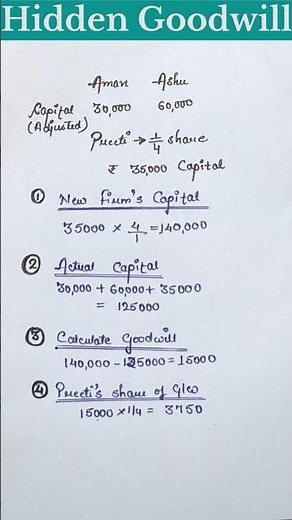 Hidden Goodwill
Aman Ashu
Capital 30,000 60,000
(Adjusted)
Preeti → 1/4 share
₹ 35,000 Capital
① New Firm's Capital
35000 × 4/1 = 140,000
② Actual Capital
30,000 + 60,000 + 35000
= 125000
③ Calculate Goodwill
140,000 - 125000 = 15000
④ Preeti's share of G/w
15000 × 1/4 = 3750